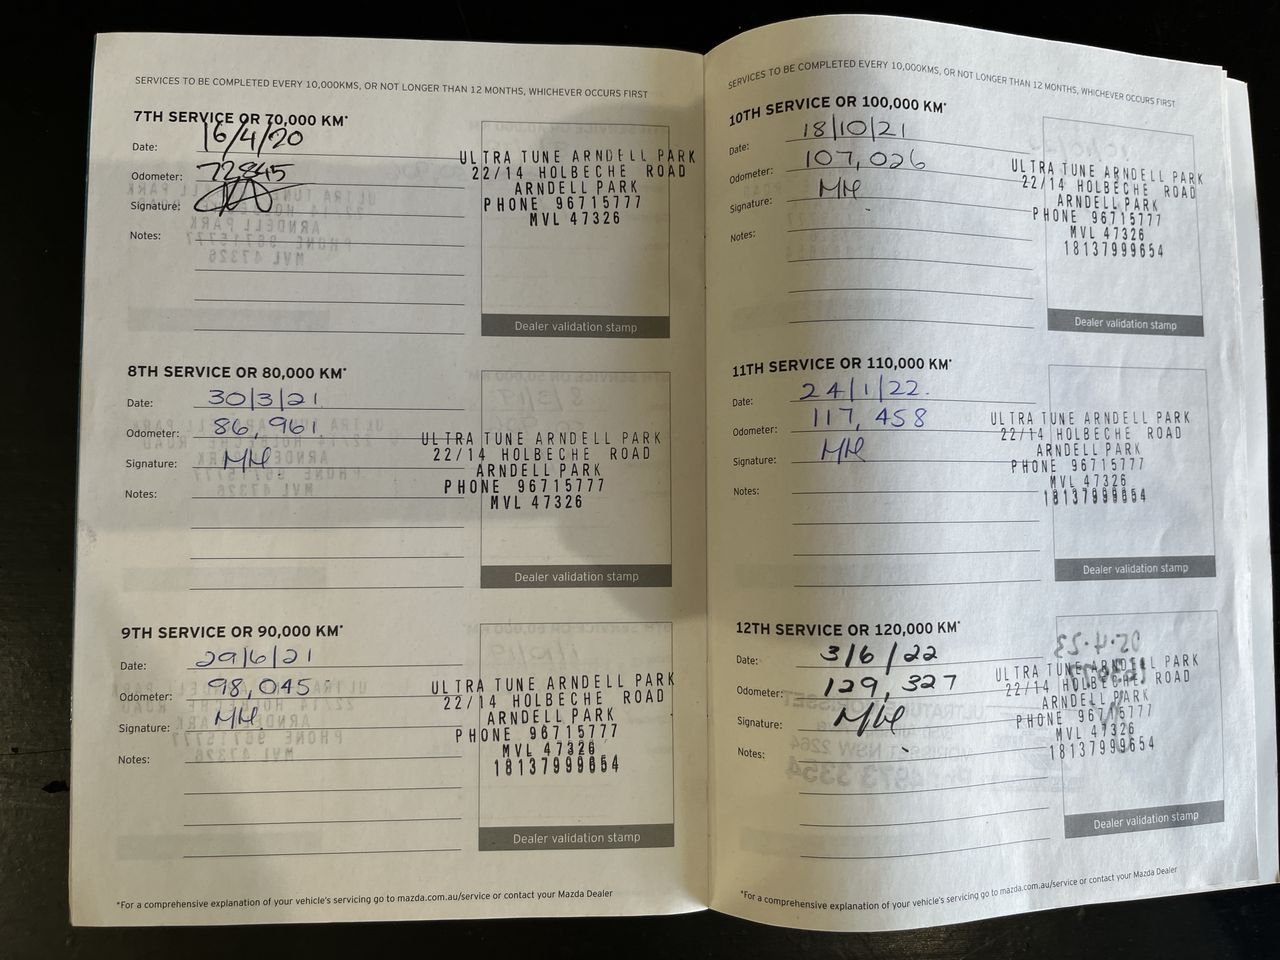 SERVICES TO BE COMPLETED EVERY 10,000KMS, OR NOT LONGER THAN 12 MONTHS, WHICHEVER OCCURS FIRST
7TH SERVICE OR 70,000 KM*
Date: 16/4/20
Odometer: 72845
Signature:
Notes:
ULTRA TUNE ARNDELL PARK
22/14 HOLBECHE ROAD
ARNDELL PARK
PHONE 96715777
MVL 47326
Dealer validation stamp
8TH SERVICE OR 80,000 KM*
Date: 30/3/21
Odometer: 86,961
Signature: MM
Notes:
ULTRA TUNE ARNDELL PARK
22/14 HOLBECHE ROAD
ARNDELL PARK
PHONE 96715777
MVL 47326
Dealer validation stamp
9TH SERVICE OR 90,000 KM*
Date: 29/6/21
Odometer: 98,045
Signature: MM
Notes:
ULTRA TUNE ARNDELL PARK
22/14 HOLBECHE ROAD
ARNDELL PARK
PHONE 96715777
MVL 47326
18137999654
Dealer validation stamp
*For a comprehensive explanation of your vehicle's servicing go to mazda.com.au/service or contact your Mazda Dealer
SERVICES TO BE COMPLETED EVERY 10,000KMS, OR NOT LONGER THAN 12 MONTHS, WHICHEVER OCCURS FIRST
10TH SERVICE OR 100,000 KM*
Date: 18/10/21
Odometer: 107,026
Signature: MM
Notes:
ULTRA TUNE ARNDELL PARK
22/14 HOLBECHE ROAD
ARNDELL PARK
PHONE 96715777
MVL 47326
18137999654
Dealer validation stamp
11TH SERVICE OR 110,000 KM*
Date: 24/1/22.
Odometer: 117,458
Signature: MM
Notes:
ULTRA TUNE ARNDELL PARK
22/14 HOLBECHE ROAD
ARNDELL PARK
PHONE 96715777
MVL 47326
18137999654
Dealer validation stamp
12TH SERVICE OR 120,000 KM*
Date: 3/6/22
Odometer: 129,327
Signature: MM
Notes:
ULTRA TUNE ARNDELL PARK
22/14 HOLBECHE ROAD
ARNDELL PARK
PHONE 96715777
MVL 47326
18137999654
Dealer validation stamp
*For a comprehensive explanation of your vehicle's servicing go to mazda.com.au/service or contact your Mazda Dealer